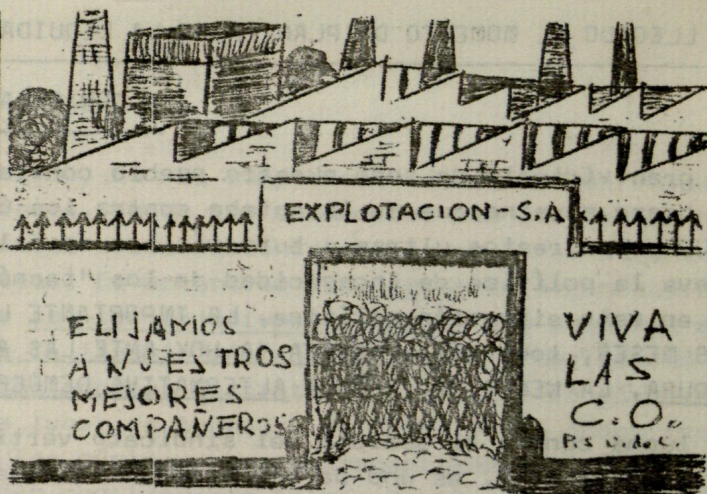 EXPLOTACION S.A
ELIJAMOS
A NUESTROS
MEJORES
COMPAÑEROS
VIVA
LAS
C.O.
P.S.U. de C.